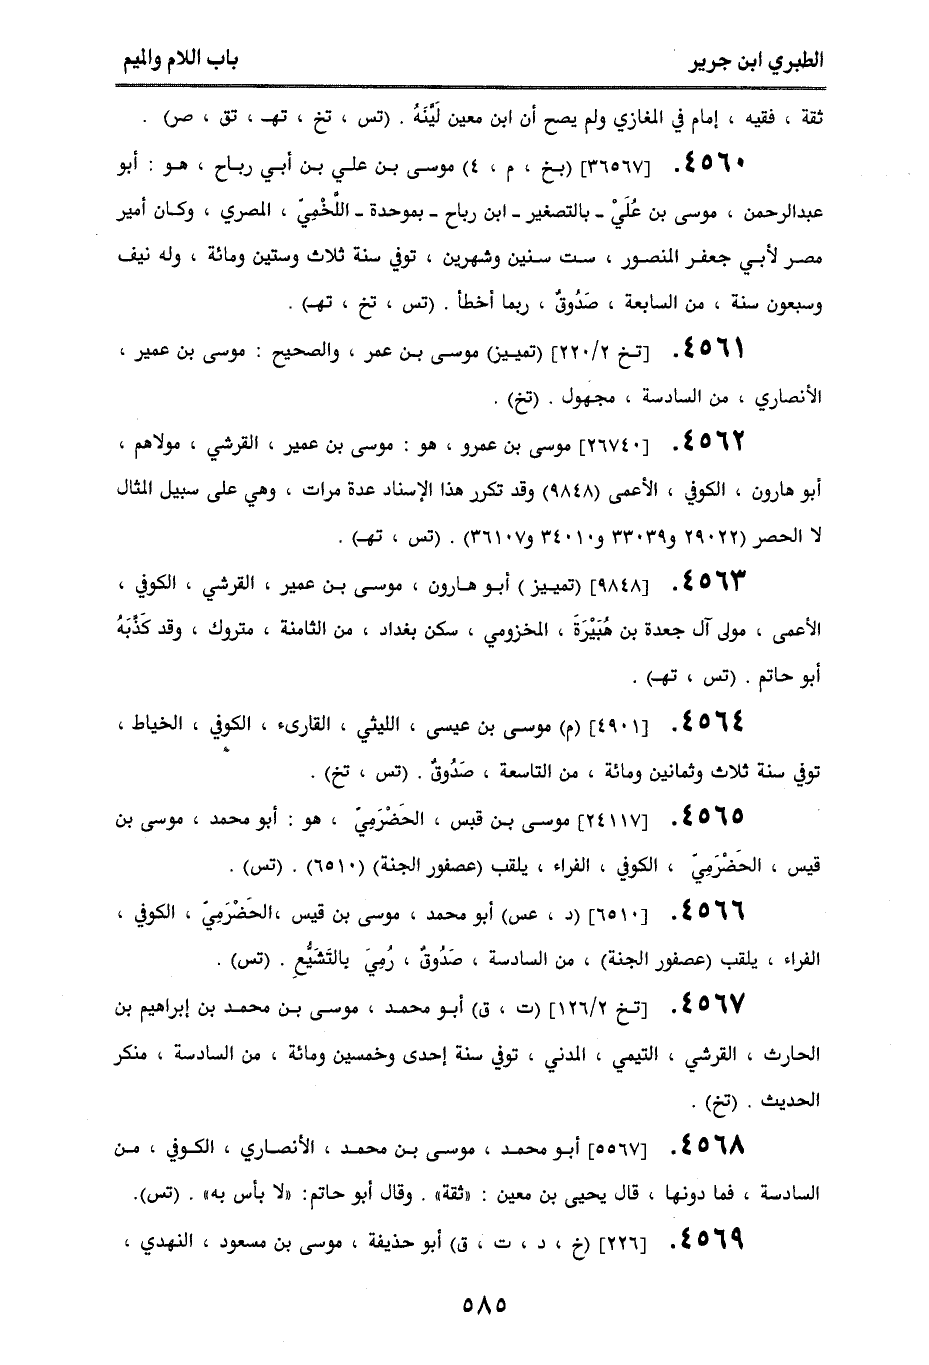 الطبري ابن جرير
باب اللام والميم
ثقة ، فقيه ، إمام في المغازي ولم يصح أن ابن معين لَيَّنَهُ . (تس ، تخ ، تهـ ، تق ، صر) .
٤٥٦٠. [٣٦٥٦٧] (بخ ، م ، ٤) موسى بن علي بن أبي رباح ، هو : أبو
عبدالرحمن ، موسى بن عُلَيْ ـ بالتصغير ـ ابن رباح ـ بموحدة ـ اللَّخْمِيّ ، المصري ، وكان أمير
مصر لأبي جعفر المنصور ، ست سنين وشهرين ، توفي سنة ثلاث وستين ومائة ، وله نيف
وسبعون سنة ، من السابعة ، صَدُوقٌ ، ربما أخطأ . (تس ، تخ ، تهـ) .
٤٥٦١. [تخ ٢٢٠/٢] (تمييز) موسى بن عمر ، والصحيح : موسى بن عمير ،
الأنصاري ، من السادسة ، مجهول . (تخ) .
٤٥٦٢. [٢٦٧٤٠] موسى بن عمرو ، هو : موسى بن عمير ، القرشي ، مولاهم ،
أبو هارون ، الكوفي ، الأعمى (٩٨٤٨) وقد تكرر هذا الإسناد عدة مرات ، وهي على سبيل المثال
لا الحصر (٢٩٠٢٢ و٣٣٠٣٩ و٣٤٠١٠ و٣٦١٠٧) . (تس ، تهـ) .
٤٥٦٣. [٩٨٤٨] (تمييز ) أبو هارون ، موسى بن عمير ، القرشي ، الكوفي ،
الأعمى ، مولى آل جعدة بن هُبَيْرَةَ ، المخزومي ، سكن بغداد ، من الثامنة ، متروك ، وقد كَذَّبَهُ
أبو حاتم . (تس ، تهـ) .
٤٥٦٤. [٤٩٠١] (م) موسى بن عيسى ، الليثي ، القارىء ، الكوفي ، الخياط ،
توفي سنة ثلاث وثمانين ومائة ، من التاسعة ، صَدُوقٌ . (تس ، تخ) .
٤٥٦٥. [٢٤١١٧] موسى بن قيس ، الحَضْرَمِيّ ، هو : أبو محمد ، موسى بن
قيس ، الحَضْرَمِيّ ، الكوفي ، الفراء ، يلقب (عصفور الجنة) (٦٥١٠) . (تس) .
٤٥٦٦. [٦٥١٠] (د ، عس) أبو محمد ، موسى بن قيس ،الحَضْرَمِيّ ، الكوفي ،
الفراء ، يلقب (عصفور الجنة) ، من السادسة ، صَدُوقٌ ، رُمِيَ بالتَشَيُّعِ . (تس) .
٤٥٦٧. [تخ ١٢٦/٢] (ت ، ق) أبو محمد ، موسى بن محمد بن إبراهيم بن
الحارث ، القرشي ، التيمي ، المدني ، توفي سنة إحدى وخمسين ومائة ، من السادسة ، منكر
الحديث . (تخ) .
٤٥٦٨. [٥٥٦٧] أبو محمد ، موسى بن محمد ، الأنصاري ، الكوفي ، من
السادسة ، فما دونها ، قال يحيى بن معين : «ثقة» . وقال أبو حاتم: «لا بأس به» . (تس).
٤٥٦٩. [٢٢٦] (خ ، د ، ت ، ق) أبو حذيفة ، موسى بن مسعود ، النهدي ،
٥٨٥